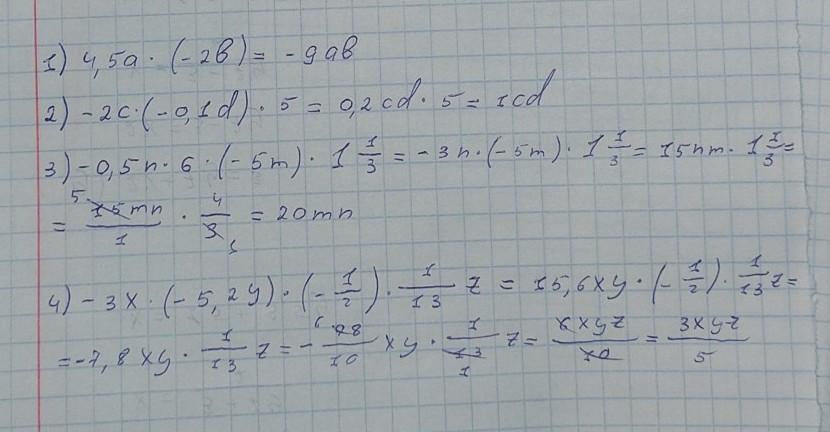 1) 4,5a · (-2в) = -9aв
2) -2c·(-0,1d) · 5 = 0,2cd · 5 = 1cd
3) -0,5n · 6 · (-5m) · 1 1/3 = -3n · (-5m) · 1 1/3 = 15nm · 1 1/3 =
= 5 15mn/1 · 4/3 1 = 20mn
4) -3x · (-5,2y) · (-1/2) · 1/13 z = 15,6xy · (-1/2) · 1/13 z =
= -7,8xy · 1/13 z = - 6 78/10 xy · 1/13 1 z = 6xyz/10 = 3xyz/5